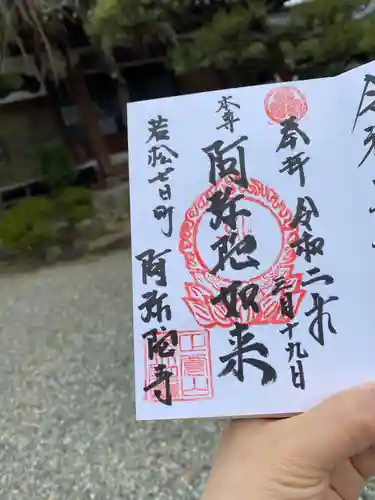 奉拝 令和二年三月十九日
本尊
阿弥陀如来
若松七日町
阿弥陀寺